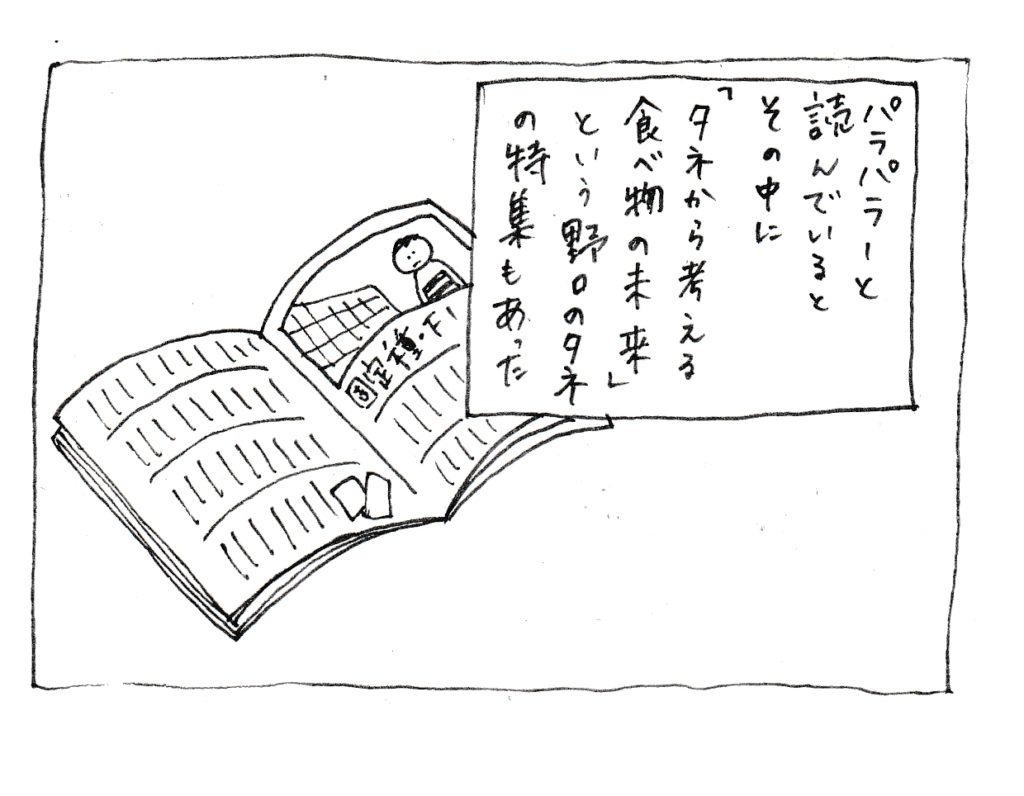 パラパラーと
読んでいると
その中に
「タネから考える
食べ物の未来」
という野口のタネ
の特集もあった
固定種・F1